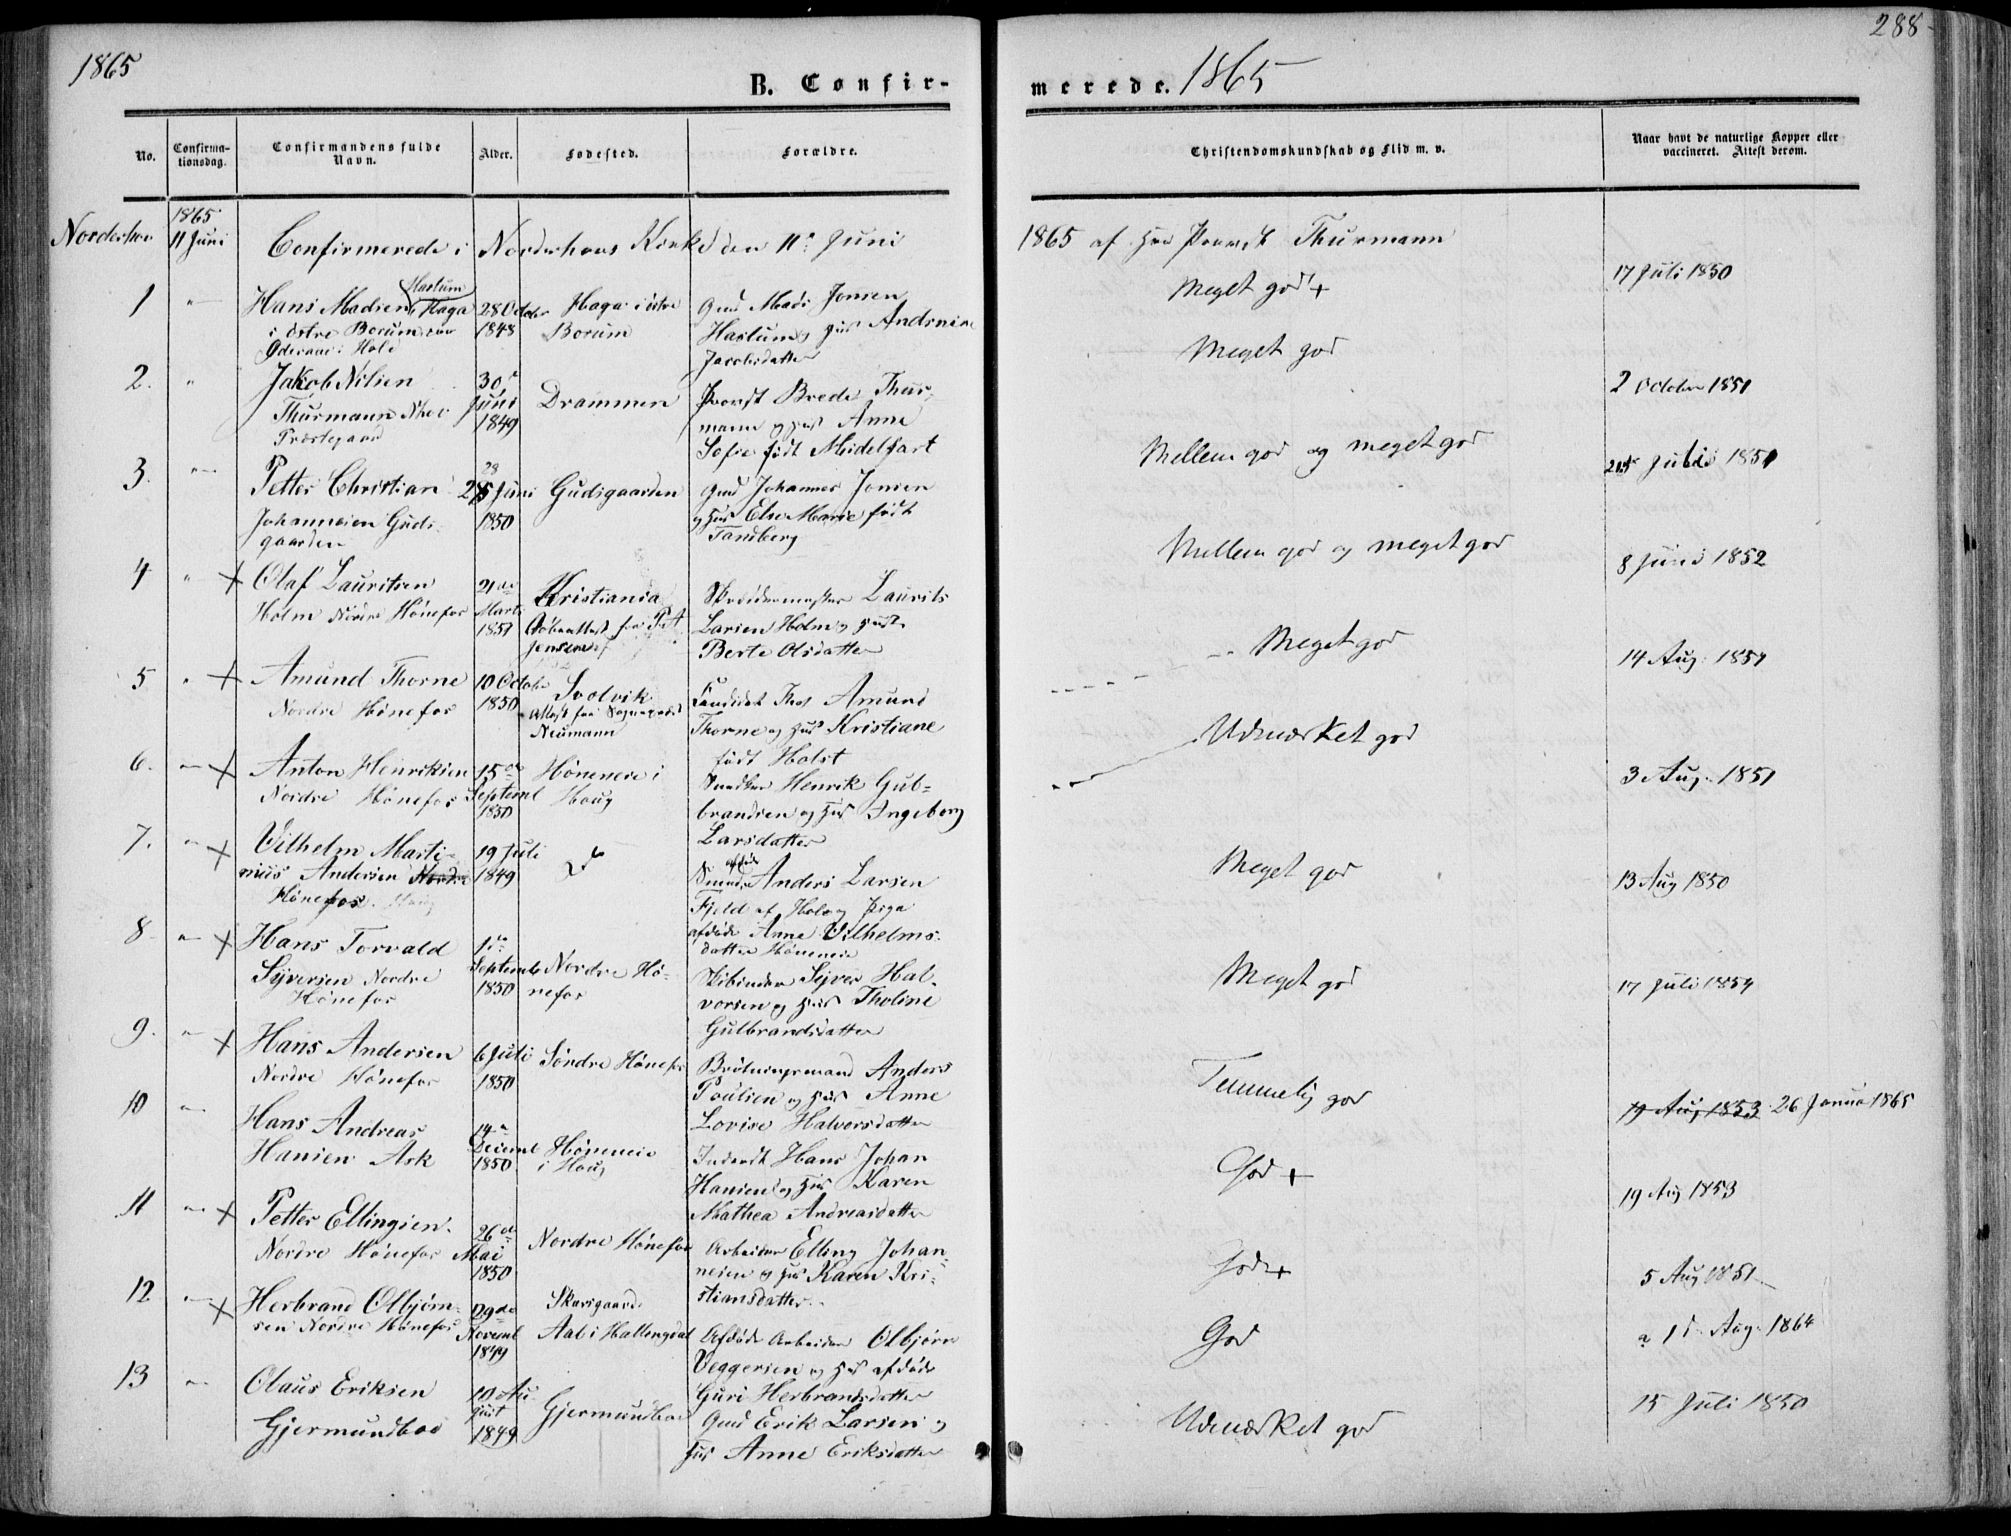 1865
B. Confir-
merede. 1865
288
No.
Confirma-
tionsdag.
Confirmandens fulde
Navn.
Alder.
Fødested.
Forældre.
Christendomskundskab og Flid m. v.
Naar havt de naturlige Kopper eller
vaccineret. Attest derom.
1865
Norderhov 11 Juni Confirmerede i Norderhovs Kirke den 11te Juni 1865 af Thurmann
1
Hans Madsen Haslum
Haga
i østre Borum
i Hole
28 October
1848
Haga i østre
Borum
Gmd Mads Jonsen
Haslum og Hus Andrine
Jacobsdatter
Meget god +
17 Juli 1850
2.
Jakob Nilsen
Thurmann
Præstegaard
30te
Juni
1849
Drammen
Provst Brede Thur-
mann og Hus Anne
Sofie født Meidelfart
Meget god
2 October 1851
3.
Petter Christian
Johannesen Guds-
gaarden
Juni
1850
Gudsgaarden
Gmd Johannes Jonsen
og Hus Else Marie født
Tandberg
Mellem god og meget god
1851
4 +
Olaf Lauritsen
Holm Nordre Hønefos
21de
Marts
1851
Kristiania
Jensen
Laurits
Larsen Holm og Hust
Berte Olsdatter
Mellem god og meget god
8 Juni 1852
5 +
Amund Thorne
Nordre Hønefos
10 October
1850
Svolvik
Attest fra
Neumann
Amund
Thorne og Hus Kristiane
født Holst
Meget god
14 Aug. 1851
6. +
Anton Henriksen
Nordre Hønefos
15de
Septembr
1850
Hønenene i
Houg
Snedker Henrik Gul-
brandsen og Hus Ingeborg
Larsdatter
Udmærket god
3 Aug. 1851
7. +
Vilhelm Marti-
nius Andersen Nordre
Hønefos.
19 Juli
1849
Anders Larsen
Fjeld af Hole og Pige
afdøde Anne Vilhelms-
datter Hønenene
Meget god
13 Aug 1850
8 +
Hans Torvald
Syversen Nordre
Hønefos
1ste
Septembr
1850
Nordre Hø-
nefos
Syver Hal-
vorsen og Hus Tholine
Gulbrandsdatter
Meget god
17 Juli 1854
9. +
Hans Andersen
Nordre Hønefos
6 Juli
1850
Søndre Hønefos
Anders
Poulsen og Hus Anne
Lovise Halvorsdatter
Temmelig god
19 Aug 1853 26 Januar 1865
10
Hans Andreas
Hansen Ask
14de
Decembr
1850
Hønenene
i Houg
Inderst Hans Johan
Hansen og Hus Karen
Mathea Andreasdatter
God +
19 Aug 1853
11 +
Petter Ellingsen.
Nordre Hønefos
26de
Mai
1850
Nordre Hønefos
Arbeider Elling Johan-
nesen og Hus Karen Kri-
stiansdatter
God +
5 Aug 1851
12 +
Herbrand Olbjørn-
sen Nordre Hønefos
29de
Novembr
1849
Aal i Hallingdal
Afdøde Arbeider Olbjørn
Veggersen og Hus afdøde
Guri Herbrandsdatter
God
Aug. 1864
13
Olaus Eriksen
Gjermundboe
10 Au-
gust
1849
Gjermundboe
Gmd Erik Larsen og
Hus Anne Eriksdatter
Udmærket god
15 Juli 1850